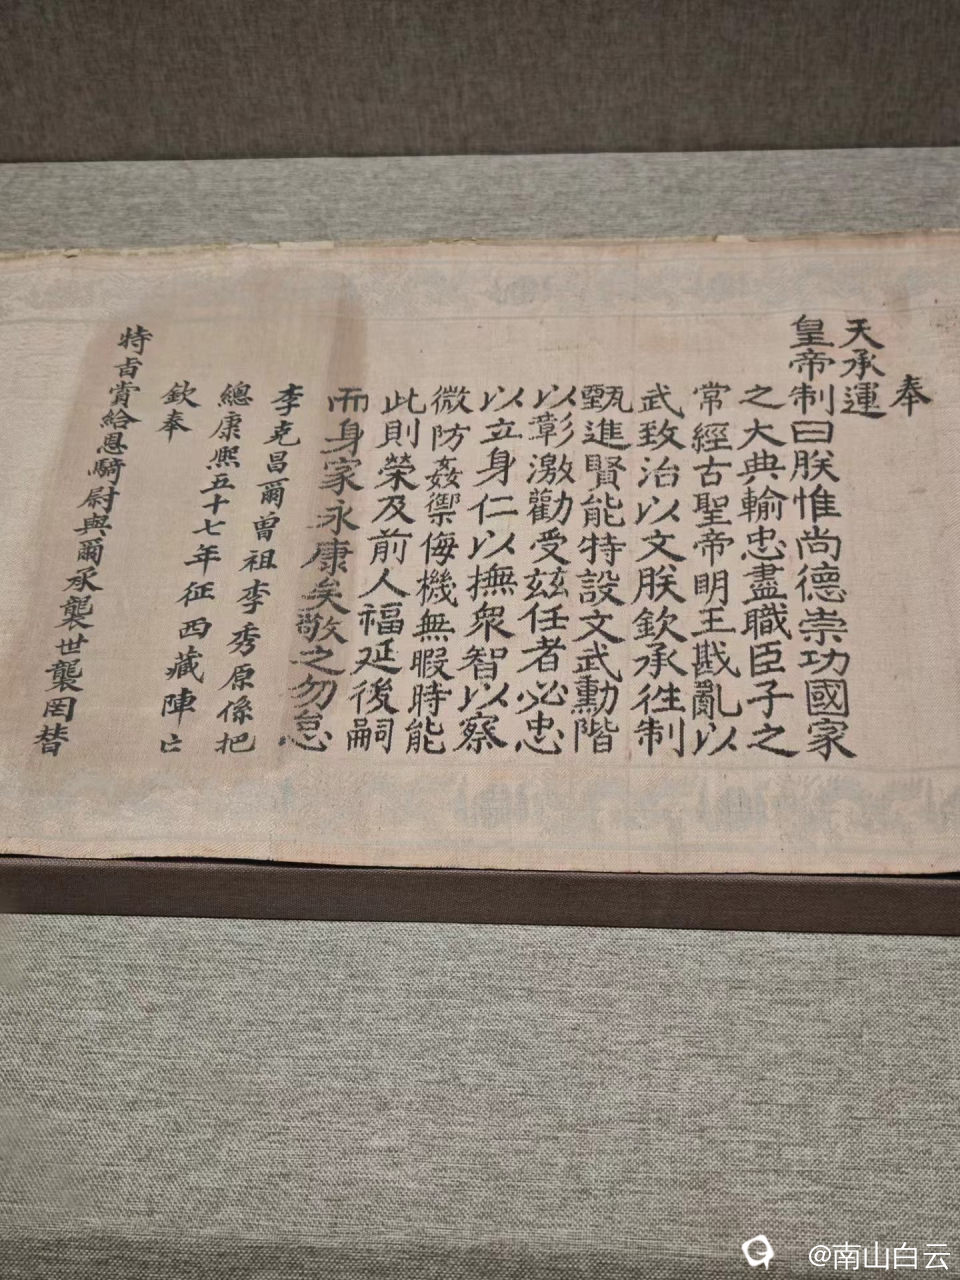 奉
天承運
皇帝制曰朕惟尚德崇功國家
之大典輸忠盡職臣子之
常經古聖帝明王戡亂以
武致治以文朕欽承徃制
甄進賢能特設文武勳階
以彰激勸受玆任者必忠
以立身仁以撫衆智以察
微防姦禦侮機無暇時能
此則榮及前人福延後嗣
而身家永康矣敬之勿怠
李克昌爾曾祖李秀原係把
總康熙五十七年征西藏陣亡
欽奉
特旨賞給恩騎尉與爾承襲世襲罔替
@南山白云